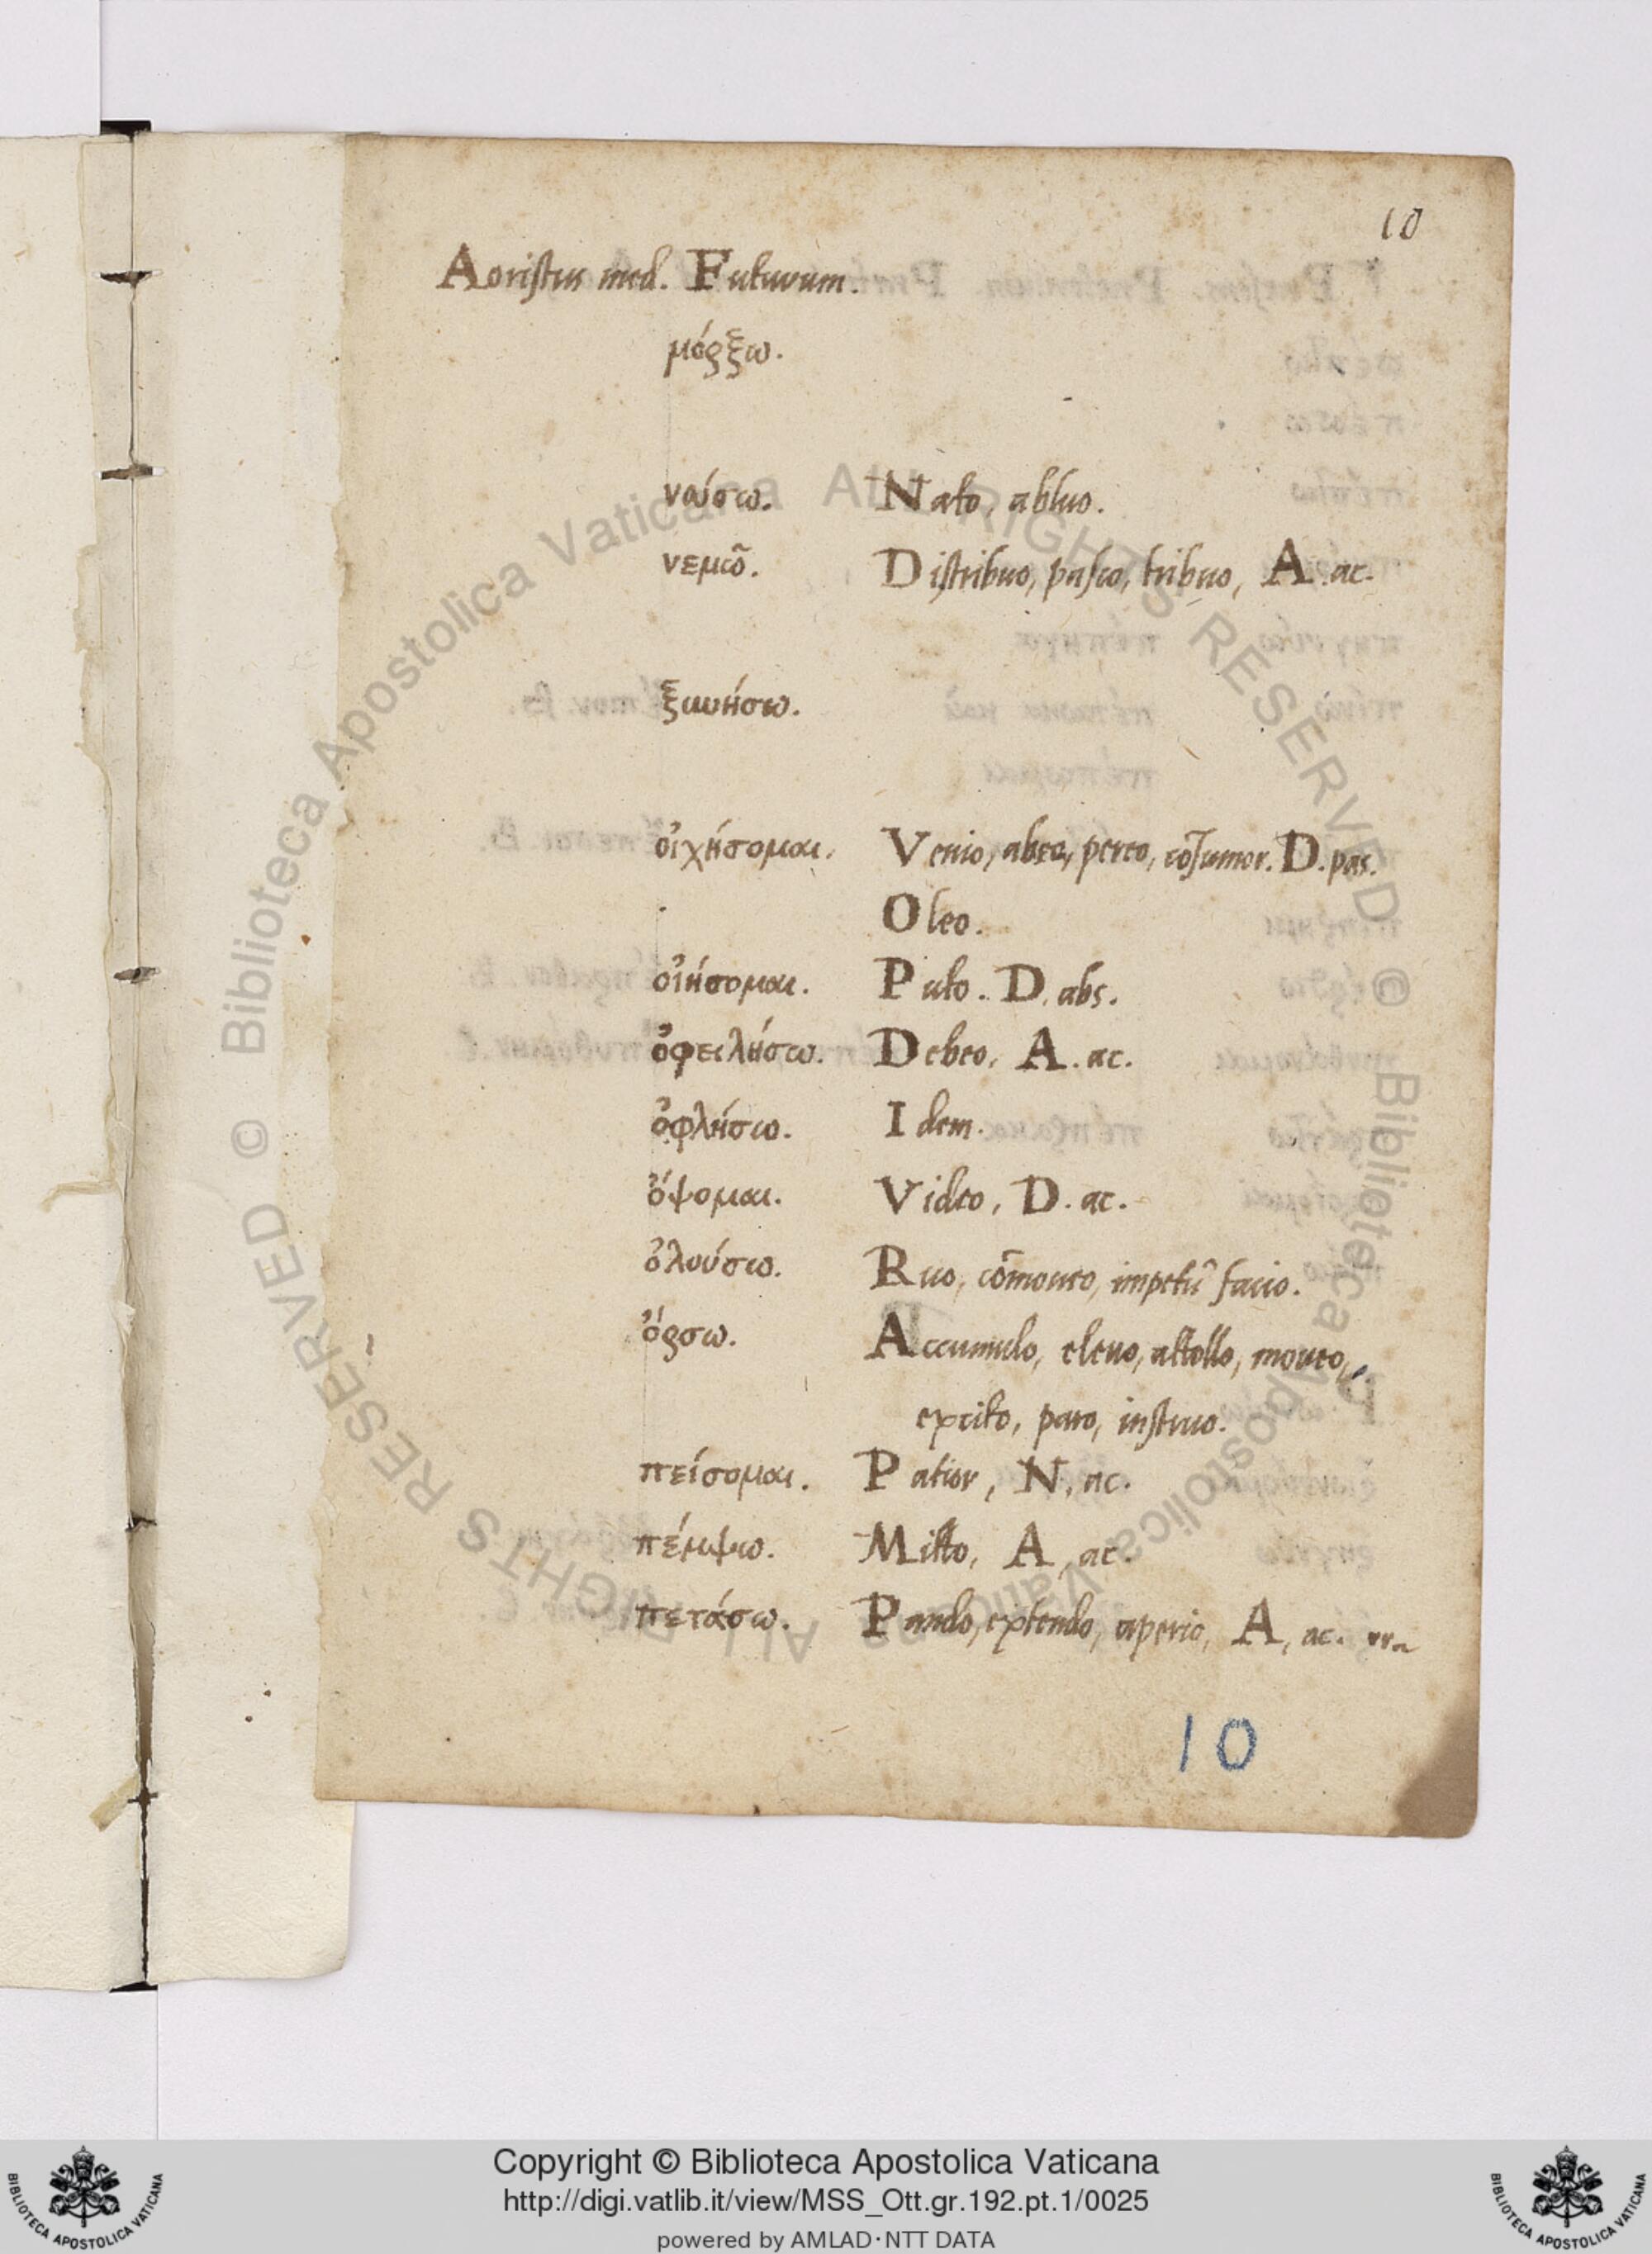 10
Aoristus med. Futurum.
μόρξω.
ναύσω. Nato, abluo.
νεμῶ. Distribuo, pasco, tribuo, A. ac.
οἰχήσομαι. Venio, abeo, pereo, cõsumor. D. pas.
Oleo.
οἰήσομαι. Puto. D. abs.
ὀφειλήσω. Debeo, A. ac.
ὀφλήσω. Idem.
ὄψομαι. Video, D. ac.
ὀλούσω. Ruo, cõmoueo, impetũ facio.
ὄρσω. Accumulo, eleuo, attollo, moueo,
excito, paro, instruo.
πείσομαι. Patior, N. ac.
πέμψω. Mitto, A, ac.
πετάσω. Pando, extendo, aperio, A, ac.
10
© Biblioteca Apostolica Vaticana ALL RIGHTS RESERVED
© Biblioteca Apostolica Vaticana ALL RIGHTS RESERVED
Copyright © Biblioteca Apostolica Vaticana
http://digi.vatlib.it/view/MSS_Ott.gr.192.pt.1/0025
powered by AMLAD·NTT DATA
BIBLIOTECA APOSTOLICA VATICANA
BIBLIOTECA APOSTOLICA VATICANA